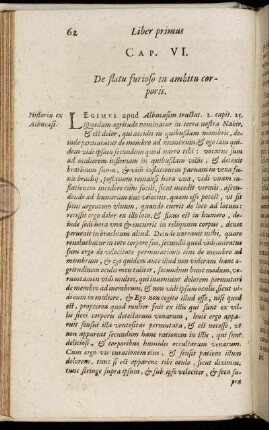 62 Liber primus
CAP. VI.
De flatu furioso in ambitu cor-
poris.
Historia ex
Albucasi.
LEGIMVS apud Albucasim tractat. 2. capit. 25.
Quædam ægritudo nominatur in terra nostra Nakir,
& est dolor, qui accidit in quibusdam membris, dein-
de permutatur de membro ad membrum: & ego iam qui-
dem vidi ipsam secundum quod narro tibi: vocatus sum
ad mulierem infirmam in quibusdam villis, & detexit
brachium suum, & vidi inflationem paruam in vena fu-
nis brachij, postquam autem hora vna, vidi eam in-
flationem incedere cum sicut incedit vermis, ascen-
dendo ad humerum velocius, quam esse possit, vt
argentum viuum, quando currit de loco ad locum:
recessit ergo dolor ex illo loco, & fixus est in humero, dein-
de sedit hora vna & cucurrit in reliquum corpus, donec
peruenit in brachium aliud. Deinde narrauit mihi,
reuoluebatur in toto corpore suo, secundum quod vidi: miratus
sum ergo de velocitate permutationis eius de membro ad
membrum, & ego quidem ante illud non videram hanc æ-
gritudinem oculis meis taliter, secundum hunc modum, ve-
runtamen vidi multos, qui inueniunt dolorem permutari
de membro ad membrum, & non vidi ipsum oculis, sicut vi-
di eum in muliere, & Ego non cogito illud esse, nisi quod
est, propterea quod mulier fuit ex illis qui sunt ex vil-
lis sicci corporis detectarum venarum, hinc ergo appa-
ruit sensui illa ventositas permutata, & est necesse, vt
non appareat secundum hanc rationem in illis, qui sunt
deliciosi, & corporibus humidis occultarum venarum.
Cum ergo vis curationem eius, & sentit patiens istum
dolorem, tunc si est apparens tibi oculo, sicut diximus,
tunc stringe supra ipsum, & sub ipso velociter, & seca su-
pra